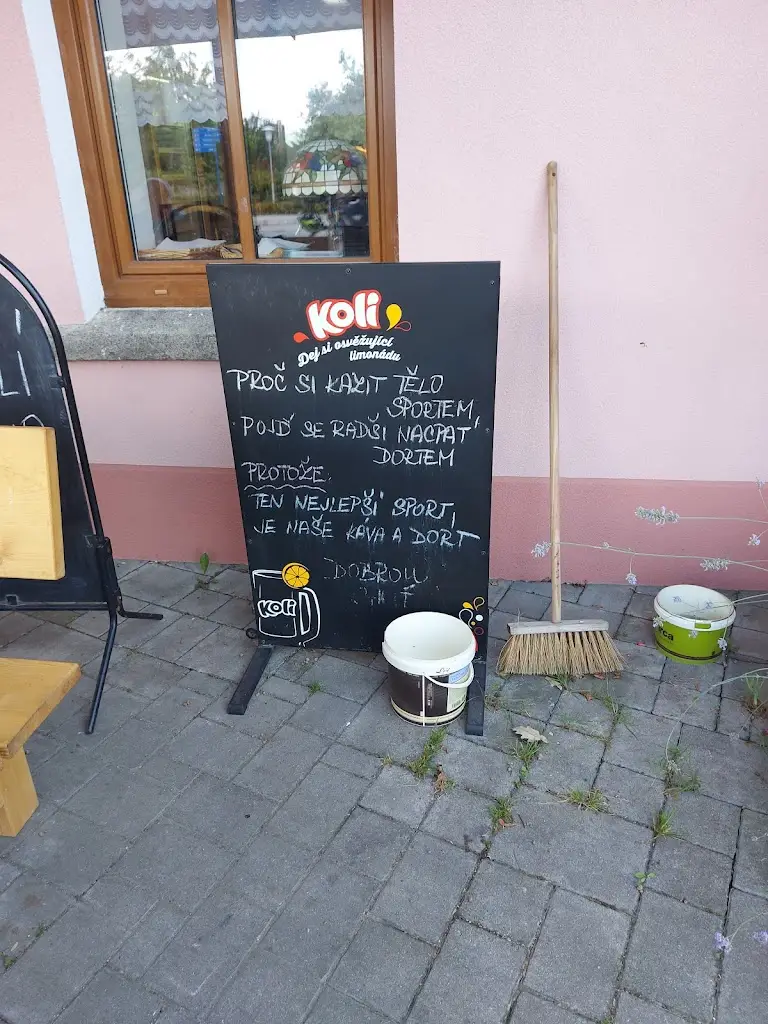 Koli
Dej si osvěžující
limonádu
PROČ SI KAZIT TĚLO
SPORTEM,
POJĎ SE RADŠI NACPAT
DORTEM
PROTOŽE
TEN NEJLEPŠÍ SPORT,
JE NAŠE KÁVA A DORT
DOBROU
Koli